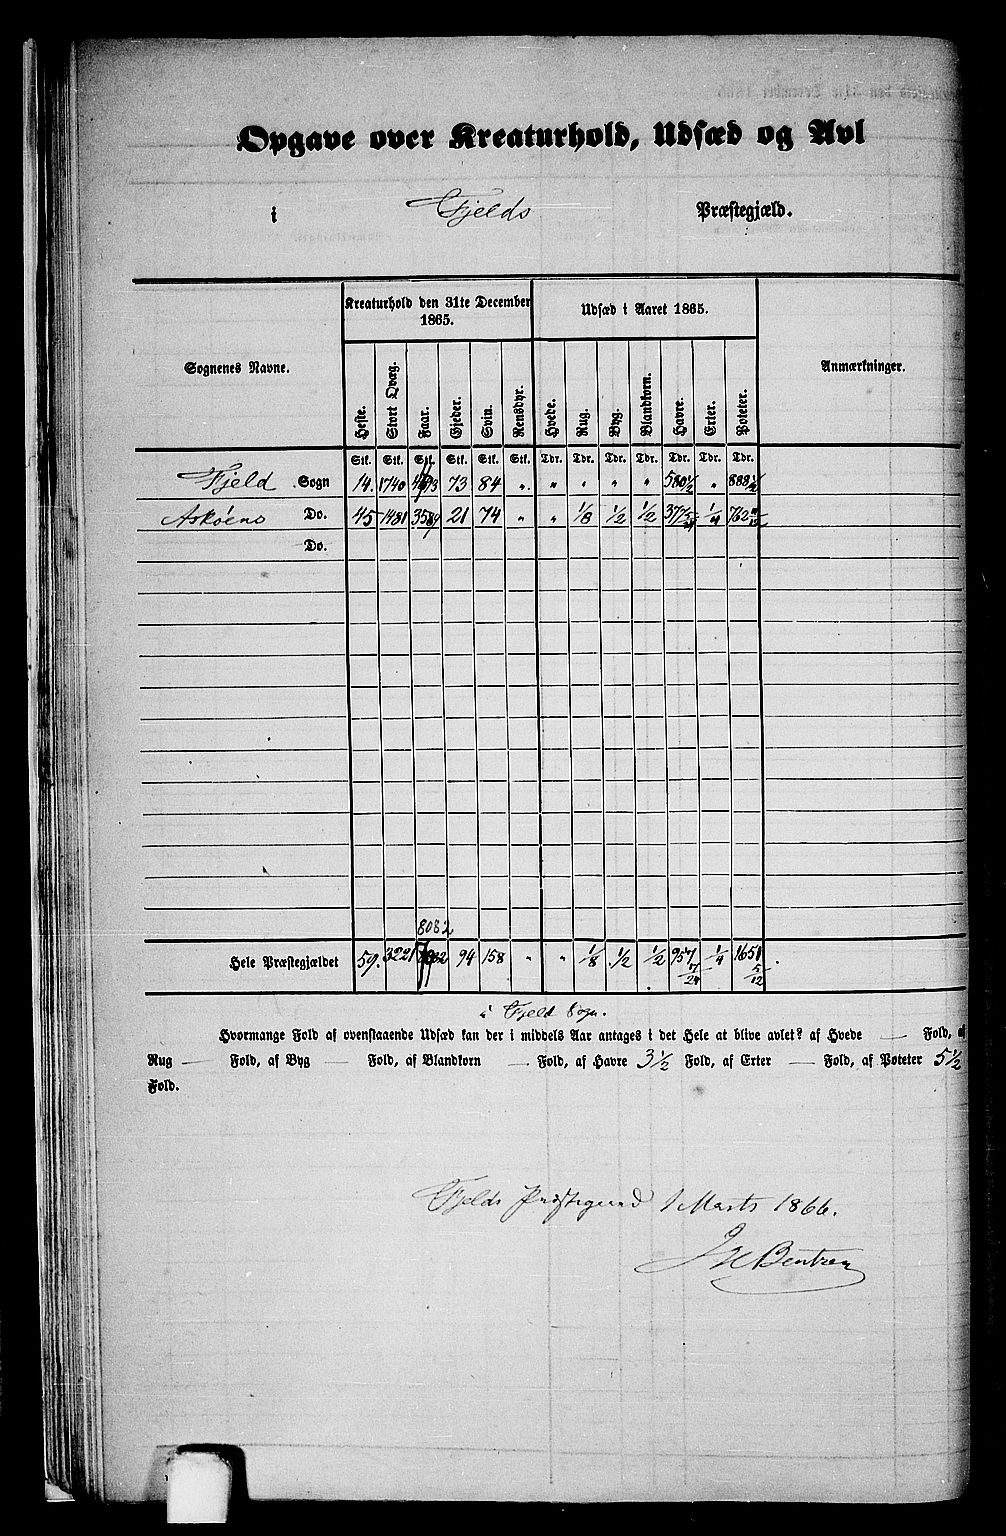 Opgave over Kreaturhold, Udsæd og Avl
i Fjelds Præstegjæld.
Sognenes Navne. Kreaturhold den 31te December 1865. Udsæd i Aaret 1865. Anmærkninger.
Heste. Stort Qvæg. Faar. Gjeder. Svin. Rensdyr. Hvede. Rug. Byg. Blandkorn. Havre. Erter. Poteter.
Stk. Stk. Stk. Stk. Stk. Stk. Tdr. Tdr. Tdr. Tdr. Tdr. Tdr. Tdr.
Fjeld Sogn 14. 1740 4493 73 84 „ „ „ „ „ 580 1/12 „ 888 1/2
Askøens Do. 45 1481 3589 21 74 „ „ 1/8 1/2 1/2 377 5/24 1/4 762 11/12
Do.
8082
Hele Præstegjældet 59. 3221 94 158 „ „ 1/8 1/2 1/2 957 7/24 1/4 1651 5/12
i Fjeld Sogn.
Hvormange Fold af ovenstaaende Udsæd kan der i middels Aar antages i det Hele at blive avlet? af Hvede — Fold, af
Rug — Fold, af Byg — Fold, af Blandkorn — Fold, af Havre 3 1/2 Fold, af Erter — Fold, af Poteter 5 1/2
Fold.
Fjelds Præstegaard 1 Marts 1866.
Bentzen